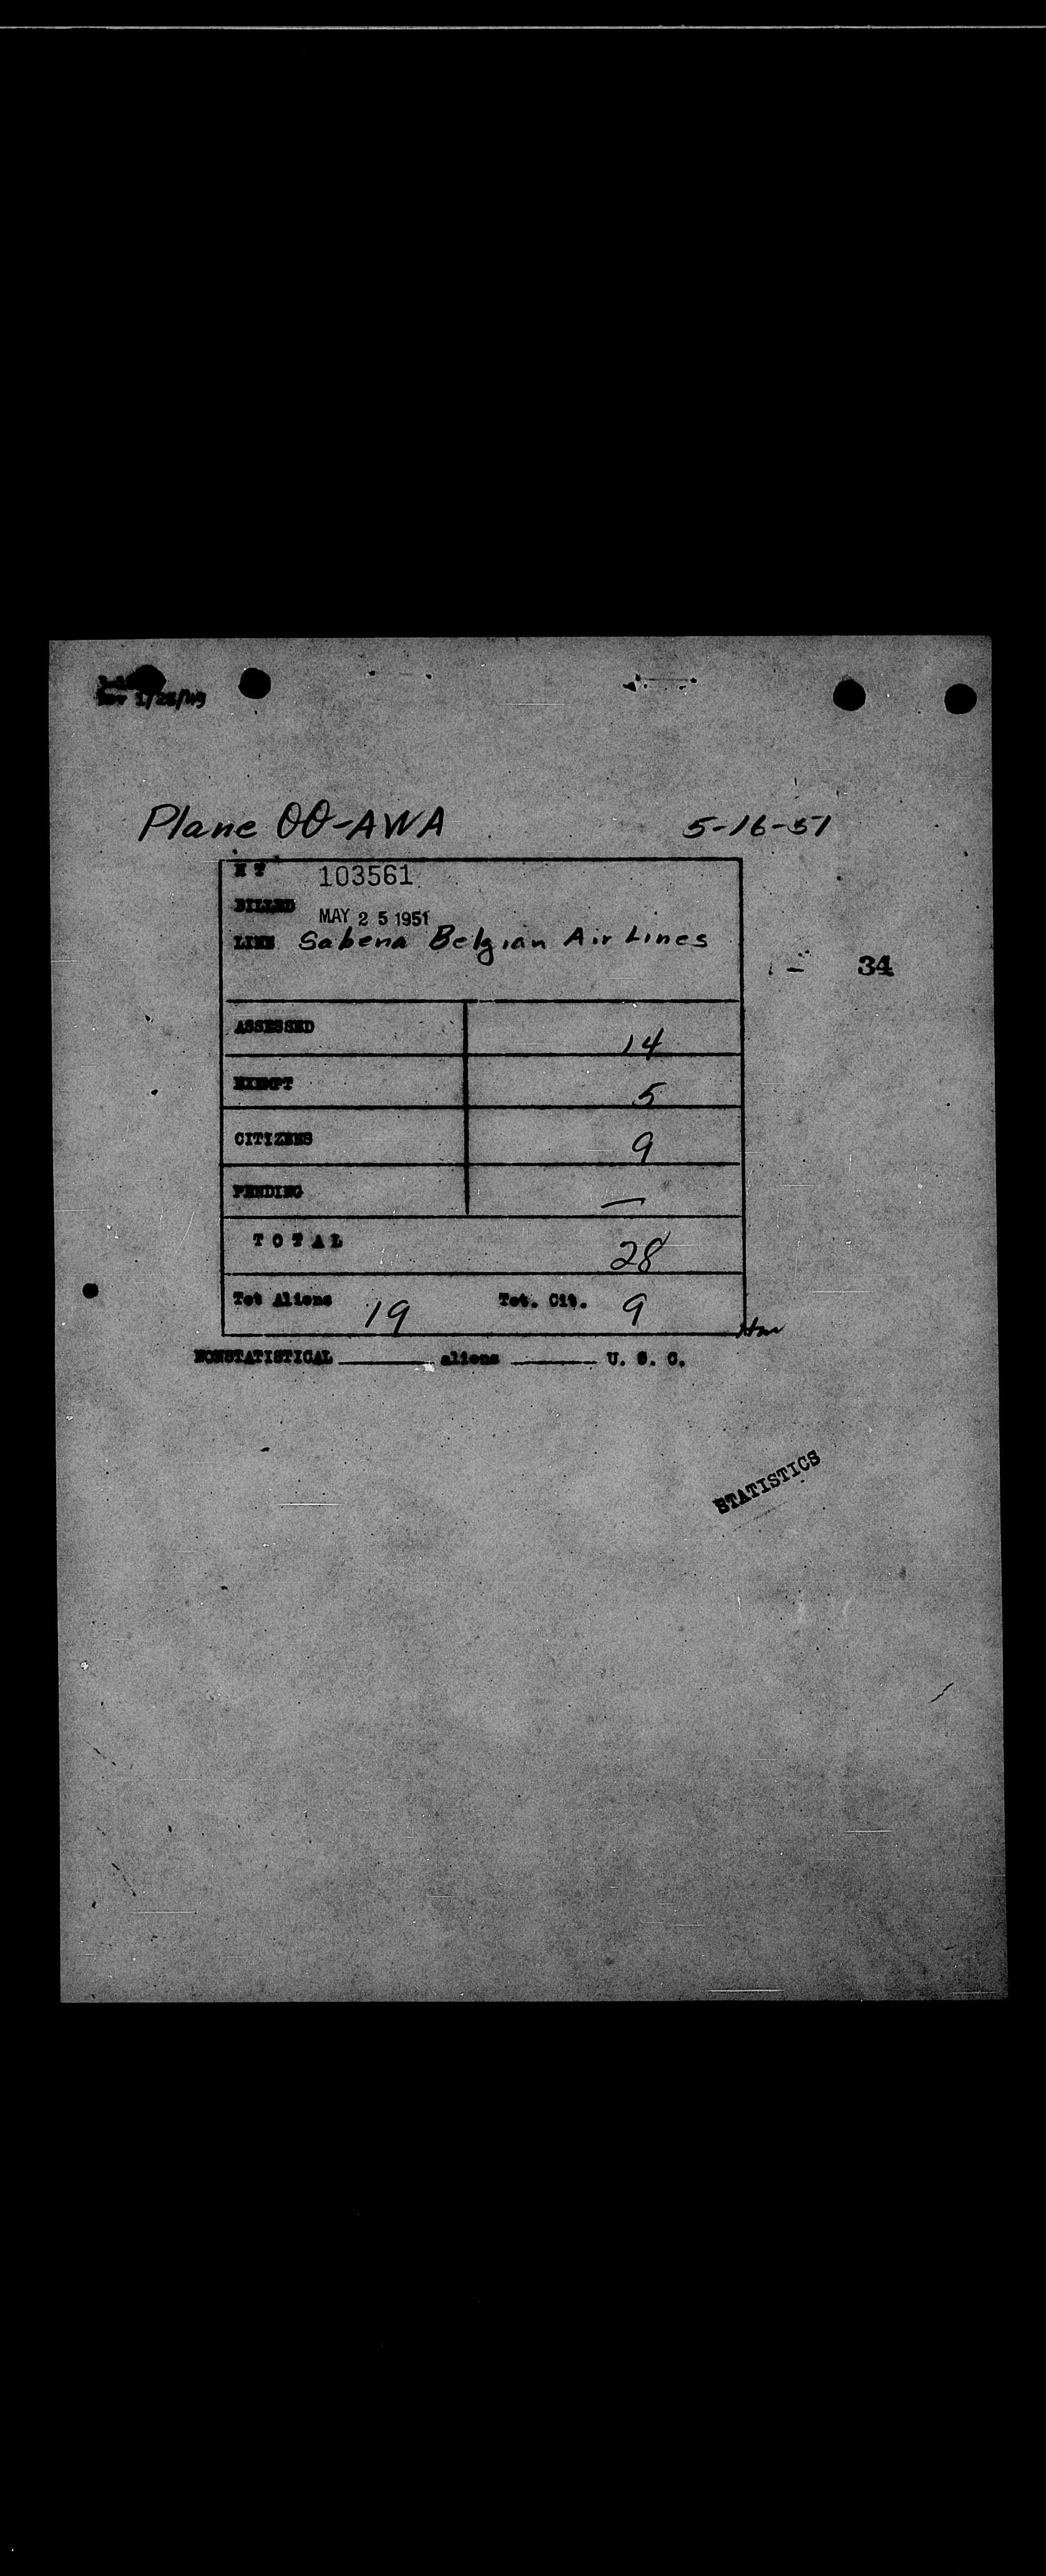 1/28/49
Plane OO-AWA 5-16-51
N Y 103561
BILLED MAY 25 1951
LINE Sabena Belgian Air Lines
- 34
ASSESSED 14
EXEMPT 5
CITIZENS 9
PENDING —
TOTAL 28
Tot Aliens 19 Tot. Cit. 9
NONSTATISTICAL ______ aliens ______ U. S. C.
STATISTICS